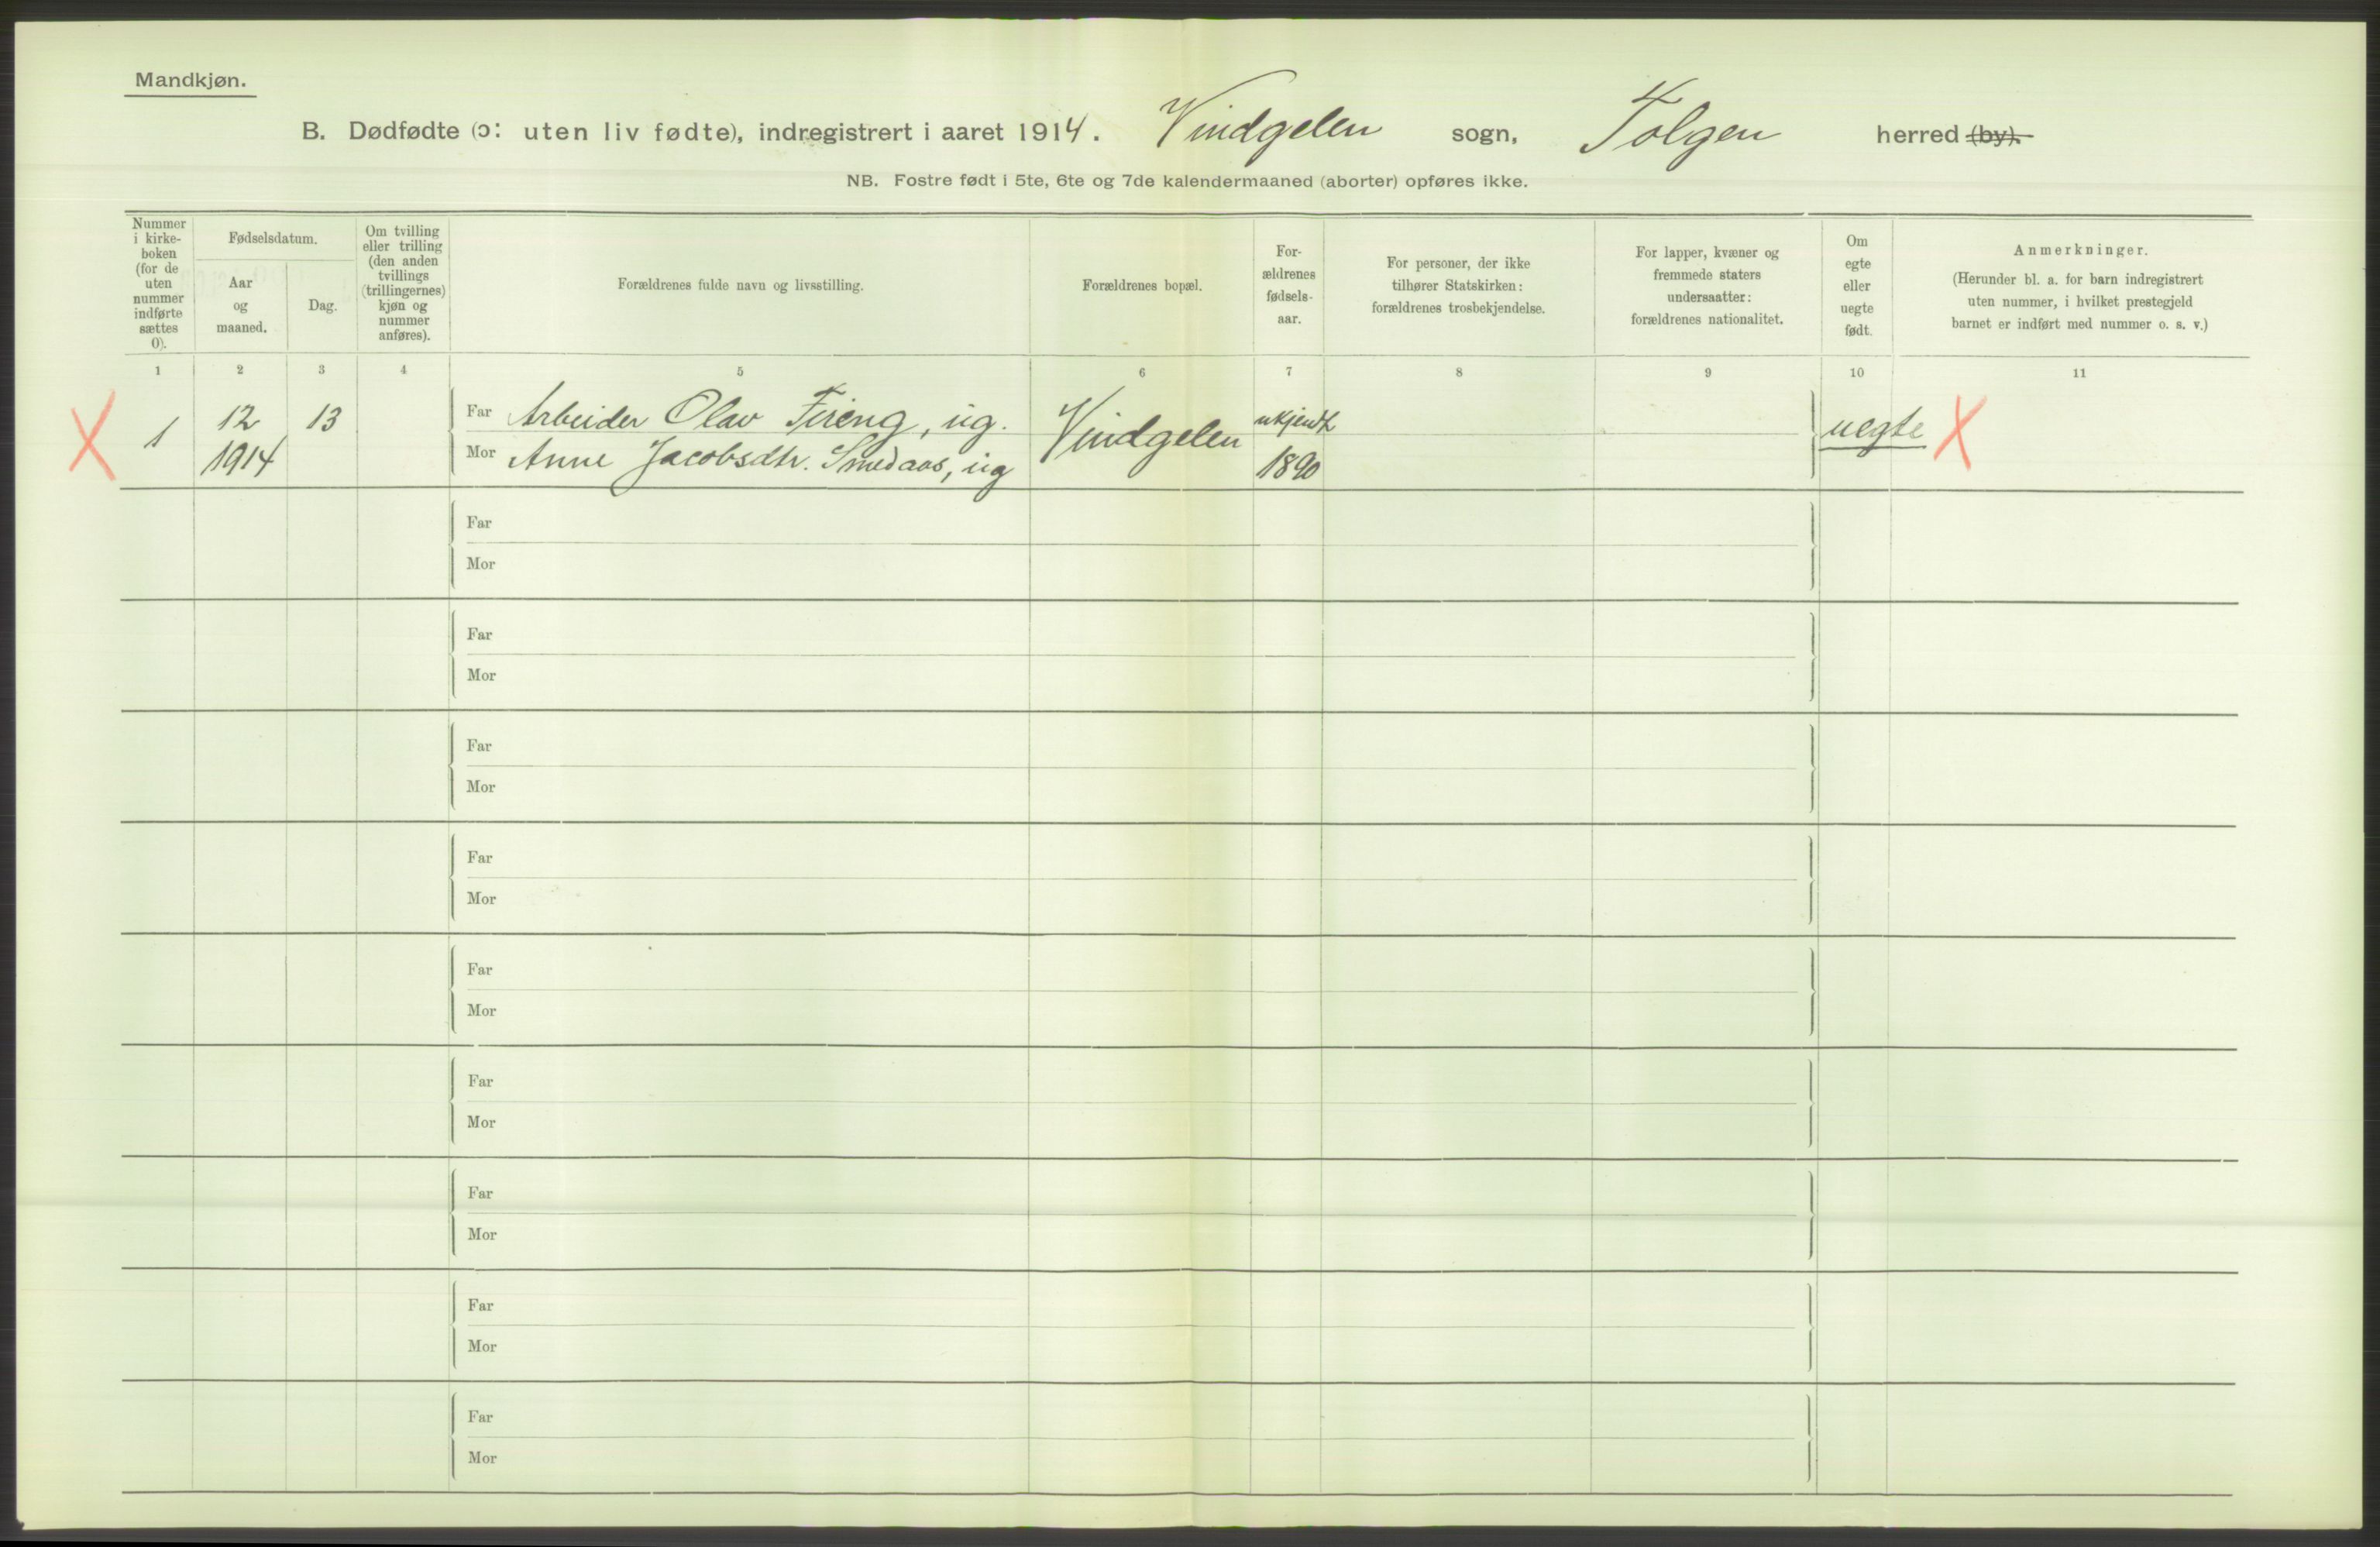 Mandkjøn.
B. Dødfødte (ɔ: uten liv fødte), indregistrert i aaret 1914. Vindgelen sogn, Tolgen herred (by).
NB. Fostre født i 5te, 6te og 7de kalendermaaned (aborter) opføres ikke.
Nummer
i kirke-
boken
(for de
uten
nummer
indførte
sættes
0).
Fødselsdatum.
Aar
og
maaned.
Dag.
Om tvilling
eller trilling
(den anden
tvillings
(trillingernes)
kjøn og
nummer
anføres).
Forældrenes fulde navn og livsstilling.
Forældrenes bopæl.
For-
ældrenes
fødsels-
aar.
For personer, der ikke
tilhører Statskirken:
forældrenes trosbekjendelse.
For lapper, kvæner og
fremmede staters
undersaatter:
forældrenes nationalitet.
Om
egte
eller
uegte
født.
Anmerkninger.
(Herunder bl. a. for barn indregistrert
uten nummer, i hvilket prestegjeld
barnet er indført med nummer o. s. v.)
1 2 3 4 5 6 7 8 9 10 11
X 1
12
1914
13
Far Arbeider Olav Fireng, ug.
Mor Anne Jacobsdtr. Smedaas, ug
Vindgelen
ukjendt
1890
uegte X
Far
Mor
Far
Mor
Far
Mor
Far
Mor
Far
Mor
Far
Mor
Far
Mor
Far
Mor
Far
Mor